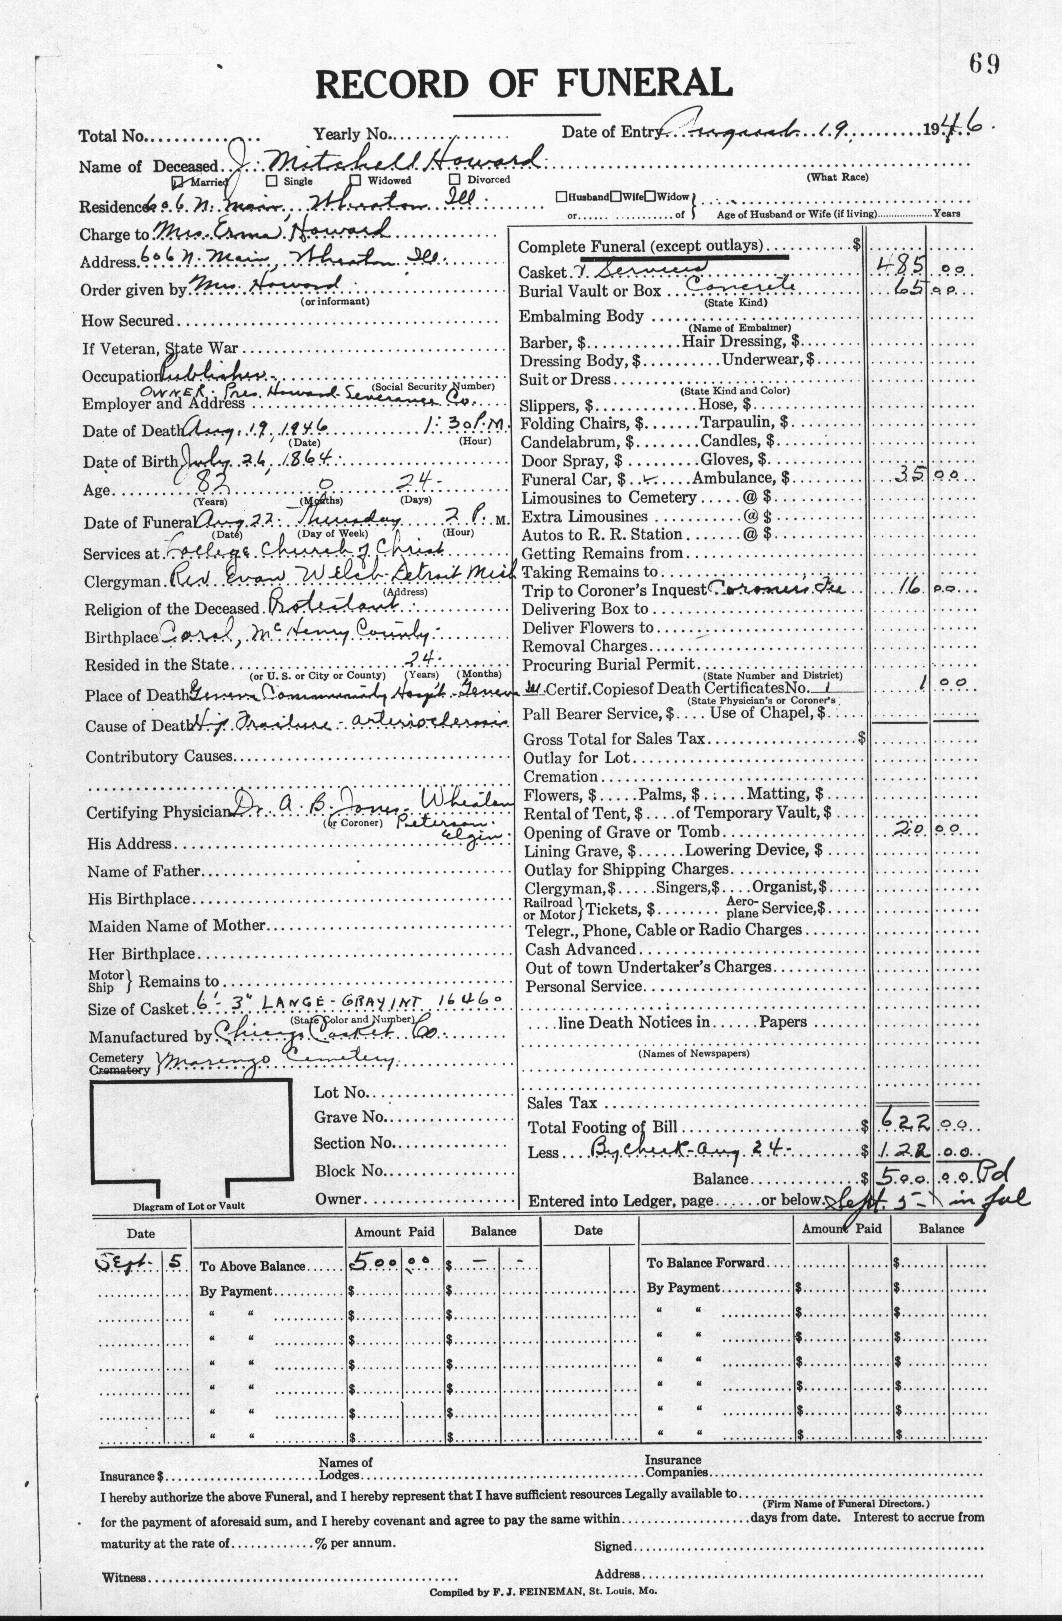 69
RECORD OF FUNERAL
Total No. Yearly No. Date of Entry August 19, 1946.
Name of Deceased J. Mitchell Howard
Married Single Widowed Divorced (What Race)
Residence 606 N. Main, Wheaton Ill. Husband Wife Widow
or of Age of Husband or Wife (if living) Years
Charge to Mrs. Erma Howard
Address 606 N. Main, Wheaton Ill.
Order given by Mrs. Howard
(or informant)
How Secured
If Veteran, State War
Occupation Publisher
(Social Security Number)
OWNER. Pres. Howard-Severance Co.
Employer and Address
Date of Death Aug. 19, 1946 1:30 P.M.
(Date) (Hour)
Date of Birth July 26, 1864
Age 82 0 24
(Years) (Months) (Days)
Date of Funeral Aug 22 Thursday 2 P. M.
(Date) (Day of Week) (Hour)
Services at College Church of Christ
Clergyman Rev. Evan Welch-Detroit Mich
(Address)
Religion of the Deceased Protestant
Birthplace Coral, McHenry County
Resided in the State 24
(or U. S. or City or County) (Years) (Months)
Place of Death Geneva Community Hosp-Geneva Ill
Cause of Death
Contributory Causes
Certifying Physician Dr. A. B. Jones-Wheaton
(or Coroner) Peterson
Elgin
His Address
Name of Father
His Birthplace
Maiden Name of Mother
Her Birthplace
Motor Ship } Remains to
Size of Casket 6'-3" LANGE-GRAY INT 16460
(State Color and Number)
Manufactured by Chicago Casket Co.
Cemetery Crematory } Marengo Cemetery
Lot No.
Grave No.
Section No.
Block No.
Owner
Diagram of Lot or Vault
Complete Funeral (except outlays) $
Casket & Services 485 00
Burial Vault or Box Concrete 65 00
(State Kind)
Embalming Body
(Name of Embalmer)
Barber, $ Hair Dressing, $
Dressing Body, $ Underwear, $
Suit or Dress
(State Kind and Color)
Slippers, $ Hose, $
Folding Chairs, $ Tarpaulin, $
Candelabrum, $ Candles, $
Door Spray, $ Gloves, $
Funeral Car, $ Ambulance, $ 35 00
Limousines to Cemetery @ $
Extra Limousines @ $
Autos to R. R. Station @ $
Getting Remains from
Taking Remains to
Trip to Coroner's Inquest Coroners Fee 16 00
Delivering Box to
Deliver Flowers to
Removal Charges
Procuring Burial Permit
(State Number and District)
Certif. Copies of Death Certificates No. 1 1 00
(State Physician's or Coroner's
Pall Bearer Service, $ Use of Chapel, $
Gross Total for Sales Tax $
Outlay for Lot
Cremation
Flowers, $ Palms, $ Matting, $
Rental of Tent, $ of Temporary Vault, $
Opening of Grave or Tomb 20 00
Lining Grave, $ Lowering Device, $
Outlay for Shipping Charges
Clergyman, $ Singers, $ Organist, $
Railroad or Motor } Tickets, $ Aero-plane Service, $
Telegr., Phone, Cable or Radio Charges
Cash Advanced
Out of town Undertaker's Charges
Personal Service
line Death Notices in Papers
(Names of Newspapers)
Sales Tax
Total Footing of Bill $ 622 00
Less By Check-Aug. 24- $ 122 00
Balance $ 500 00 Pd
Entered into Ledger, page or below Sept. 5- in ful
Date Amount Paid Balance Date Amount Paid Balance
Sept. 5 To Above Balance 500 00 $ - - To Balance Forward $
By Payment $ $ By Payment $ $
" " $ $ " " $ $
" " $ $ " " $ $
" " $ $ " " $ $
" " $ $ " " $ $
" " $ $ " " $ $
" " $ $ " " $ $
Insurance $ Names of Lodges Insurance Companies
I hereby authorize the above Funeral, and I hereby represent that I have sufficient resources Legally available to
(Firm Name of Funeral Directors.)
for the payment of aforesaid sum, and I hereby covenant and agree to pay the same within days from date. Interest to accrue from
maturity at the rate of % per annum. Signed
Witness Address
Compiled by F. J. FEINEMAN, St. Louis, Mo.